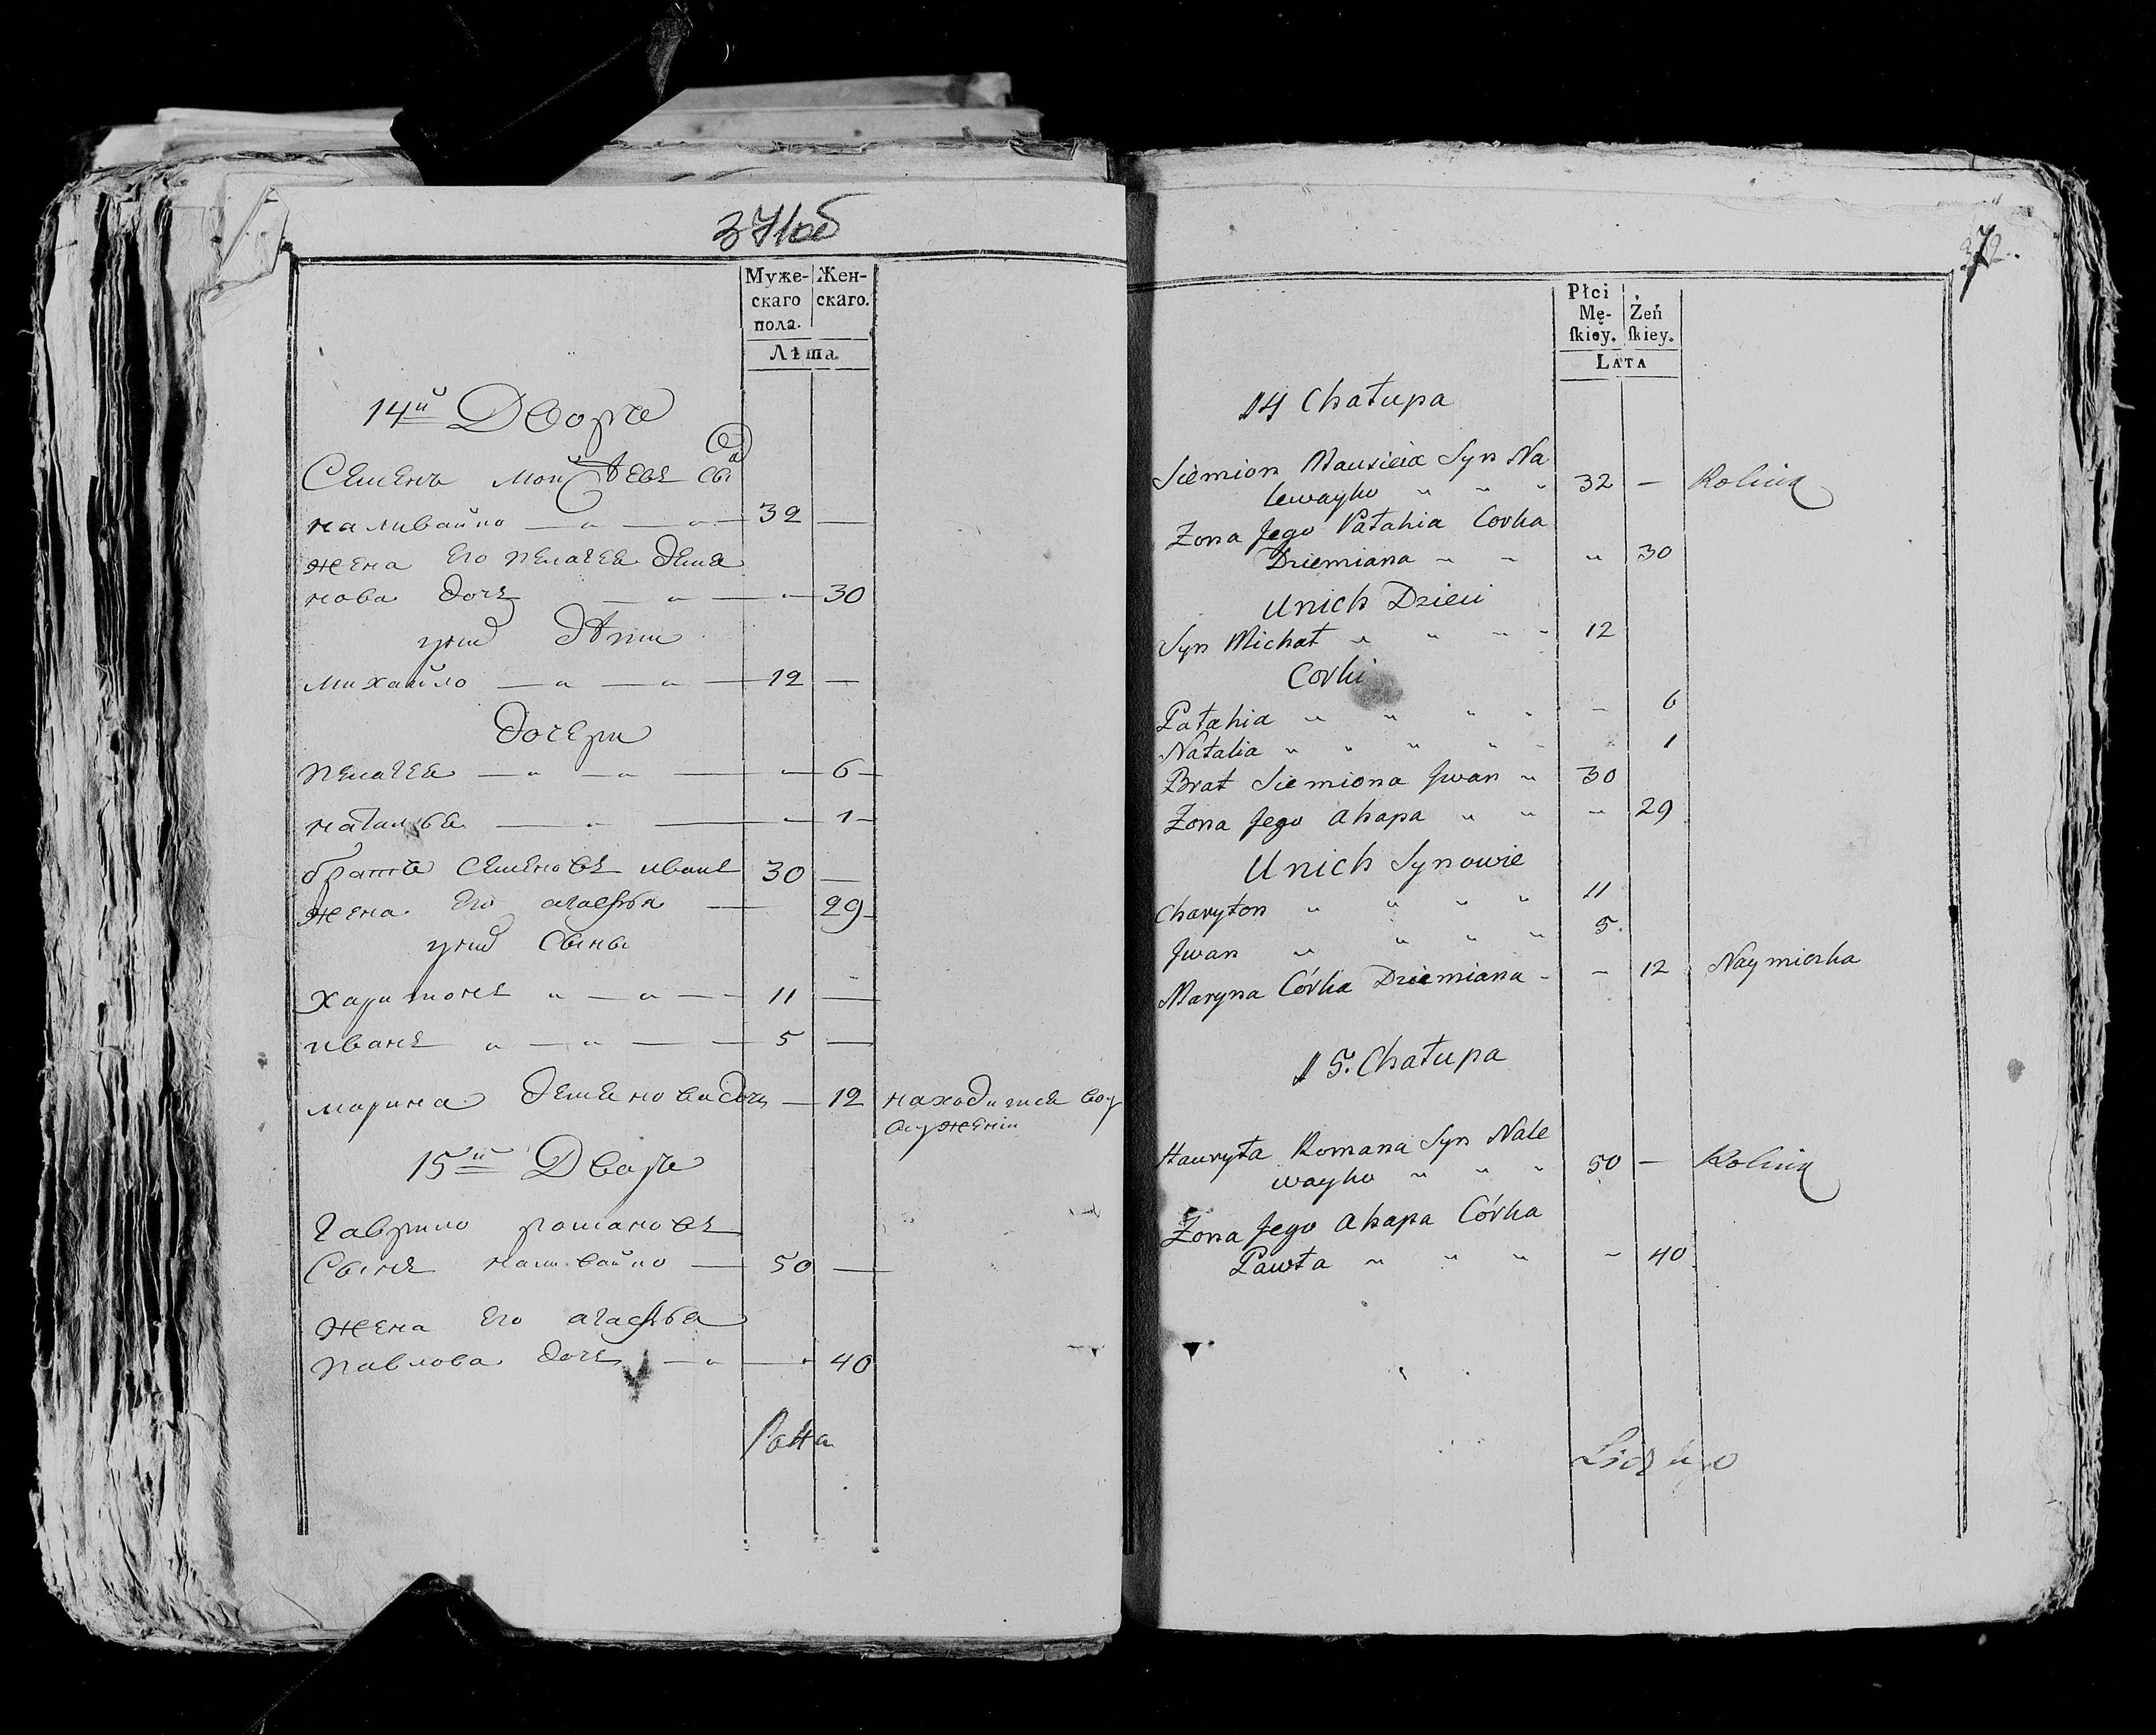 371об
Муже- Жен-
скаго скаго.
пола.
Лѣта.
14й Дворъ
Семенъ Мойсѣевъ сы
наливайко — " — " — 32 —
жена Его пелагея демя
нова дочь — " — " — 30
у них дѣти
михайло — " — " — 12 —
дочери
пелагея — " — " — " — 6 —
наталья — " — " — 1 —
братъ Семеновъ иванъ 30 —
жена Его агафья — 29 —
у них Сыны
харитонъ " — " — 11 —
иванъ " — " — 5 —
марина демяновадочь — 12 находится воу
служении
15й Дворъ
гаврило романовъ
Сынъ наливайко — 50 —
жена Его агафья
павлова дочь — " — " 40
372.
Płci
Mę- Żeń
ſkiey. ſkiey.
LATA
14 Chałupa
Siemion Mausieia Syn Na
lewayko " " " 32 — Rolnik
Zona Jego Pałahia Corka
Dziemiana " " " 30
Unich Dzieci
Syn Michał " " " " 12
Corki
Pałahia " " " " - 6
Natalia " " " " " 1
Brat Siemiona Jwan " 30
Zona Jego Ahapa " " " 29
Unich Synowie
Charyton " " " " 11
Jwan " " " " 5.
Maryna Córka Dziemiana - - 12 Naymiczka
15. Chałupa
Hawryła Romana Syn Nale
wayko " " " 50 — Rolnik
Zona Jego Ahapa Córka
Pawła " " " " 40